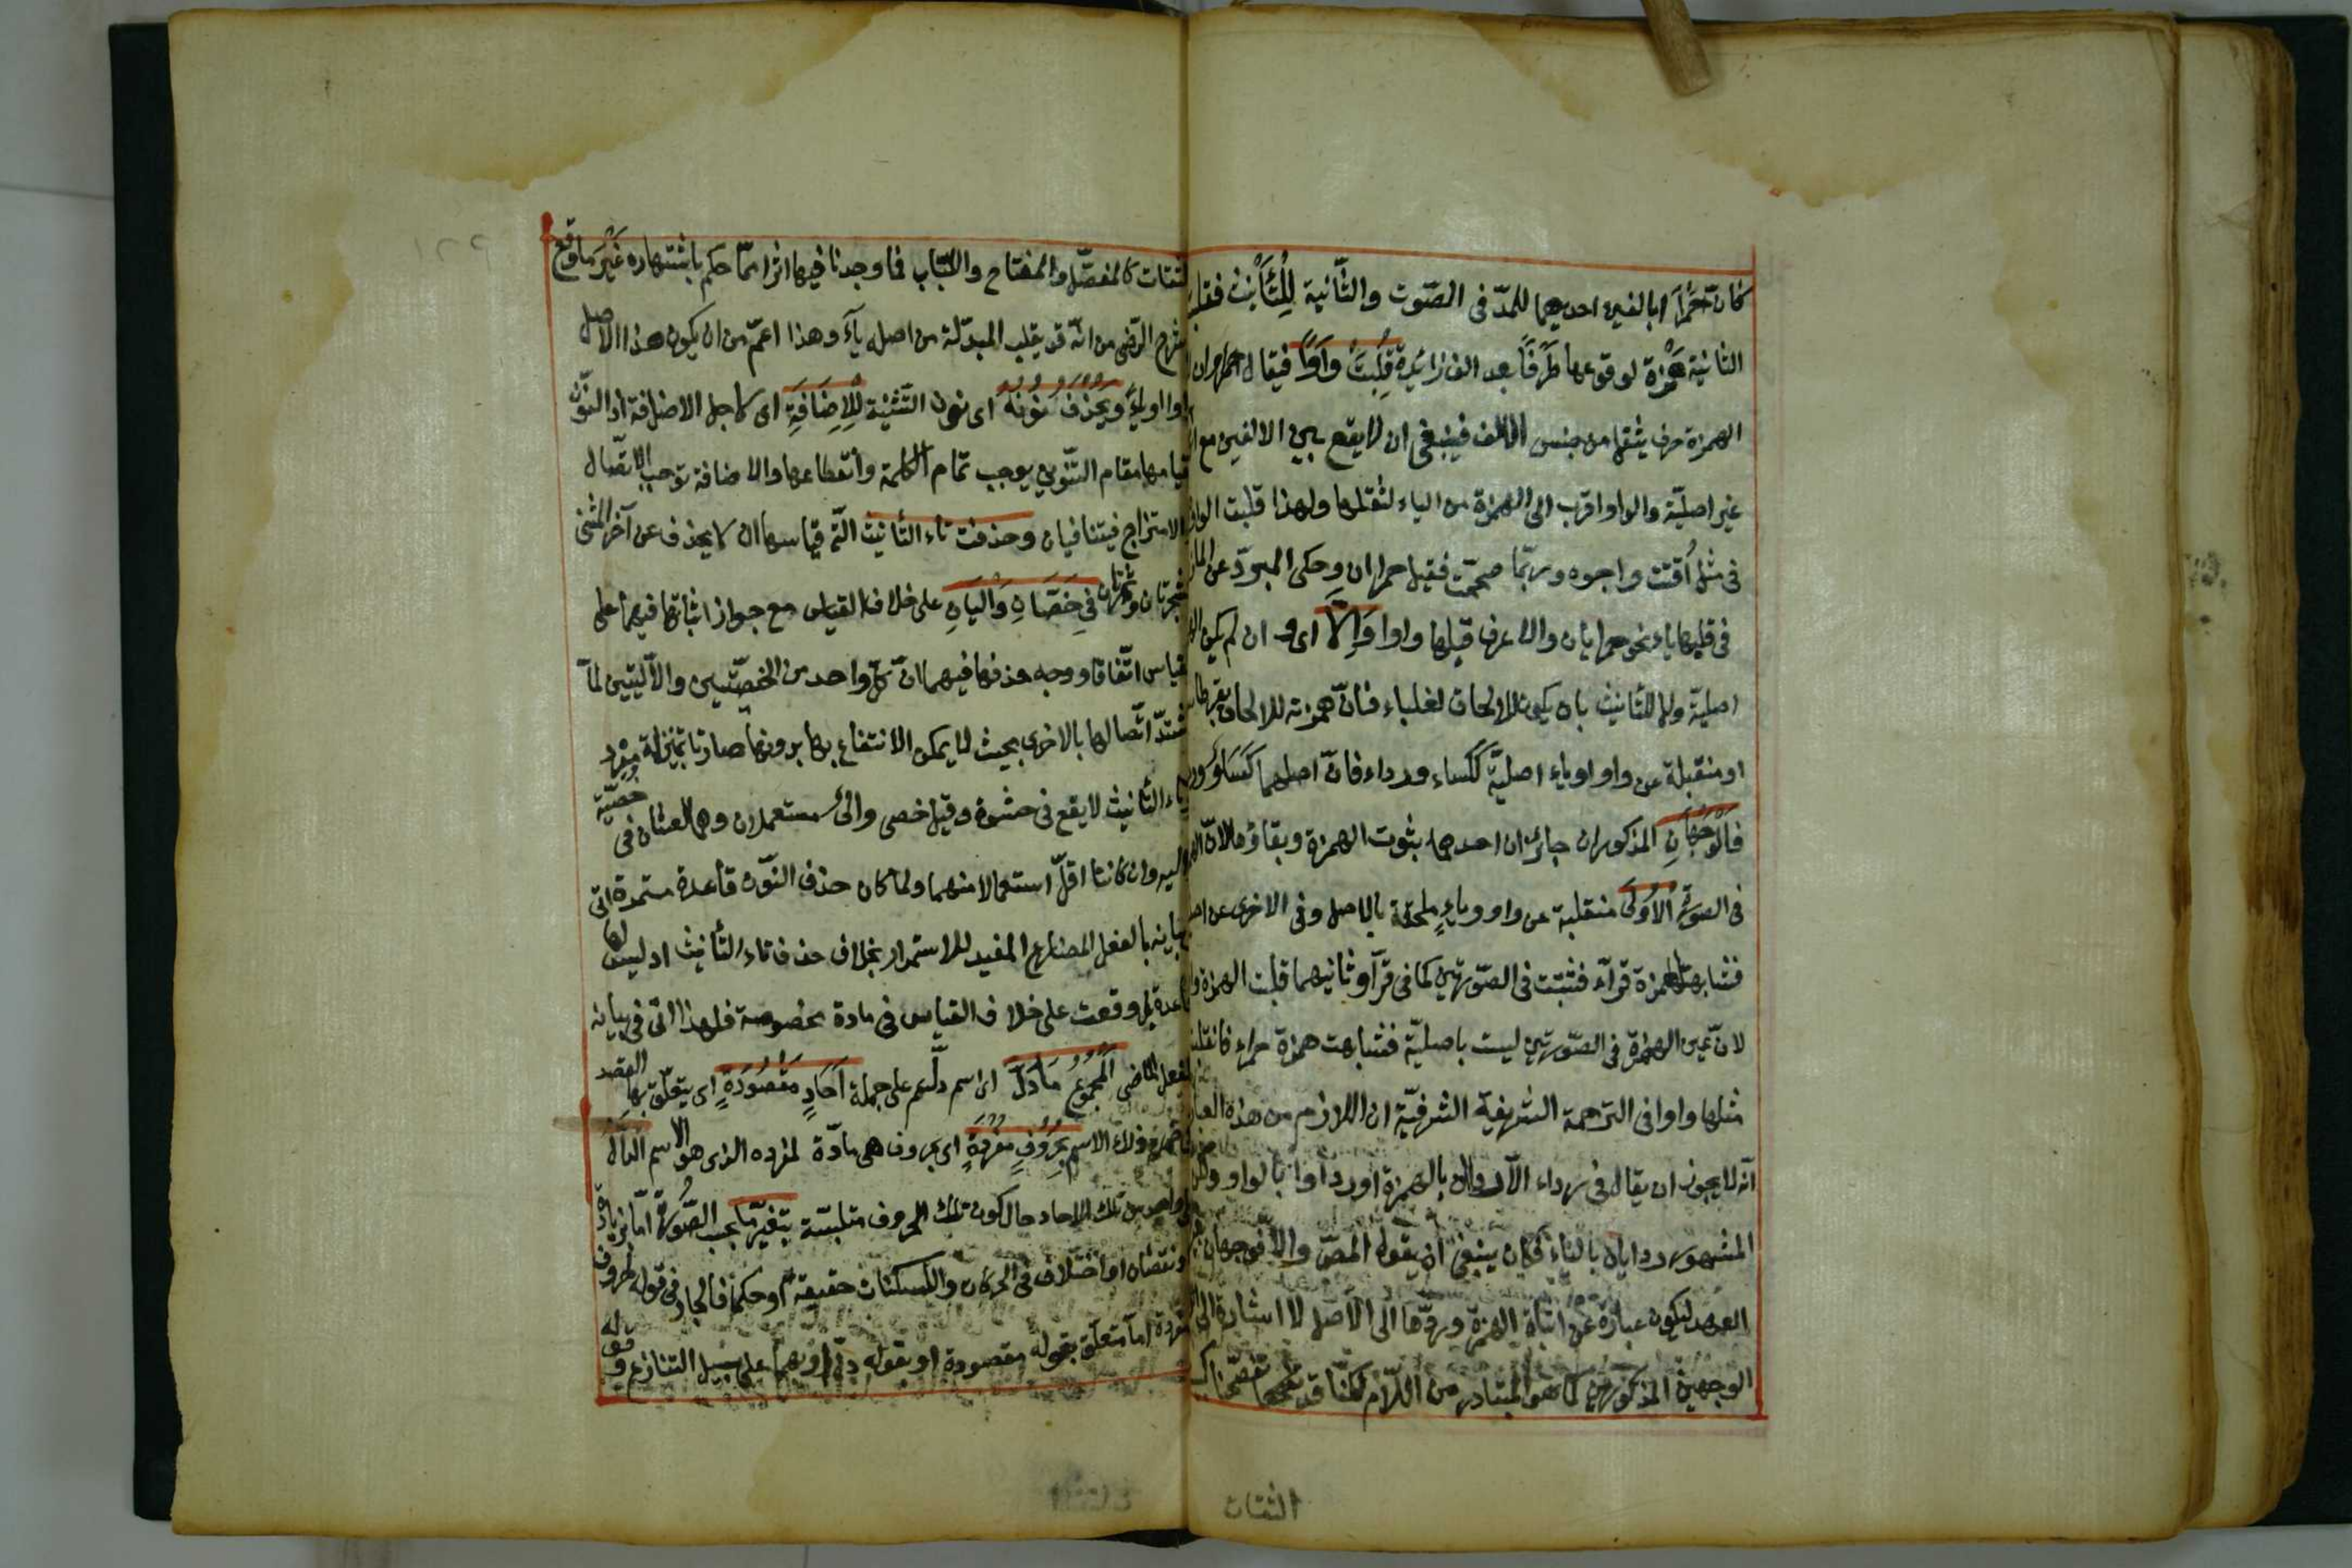 كان حمرا ابالفين احديهما للمدّ فى الصّوت والثّانية لِلْتَّأْنِيْث فقلبت
الثانية همزة لوقوعها طَرَفًا بعد الف زائدة قُلِبَتْ وَاوًا فيقال حمراوان
الهمزة حرف يثقل من جنس الالف فينبغى ان لا يقع بين الالفين مع
غير اصليّة والواو اقرب الى الهمزة من الياء لثقلها ولهذا قلبت الواو
فى مثل اُقتت واجوه وربّما صحّت فقيل حمراان وحكى المبرّد عن الماز
فى قلبها ياء نحو حمرايان والاعرف قلبها واوا وَاِلَّا اى وان لم يكن
اصليّة ولا للتأنيث بان يكون للالحاق لعلباء فانّ همزته للالحاق بقرطاس
او منقبلة عن واو او ياء اصليّة ككساء ورداء فانّ اصلهما كساو ورد
فَالْوَجْهَانِ المذكوران جائزان احدهما بثبوت الهمزة وبقاؤها لانّ
فى الصورة الْاُوْلَى منقلبة عن واو وياءٍ ملحقة بالاصل وفى الاخرى عن اصـ
فشابهتا همزة قرّآء فثبتت فى الصّورتين كما فى قرّآء وثانيهما قلبت الهمزة و
لانّ عين الهمزة فى الصّورتين ليست باصليّة فشابهت همزة حمراء فانقلبت
مثلها واوا فى الترجمة الشريفية الشرفيّة ان اللازم من هذه العبار
انّه لا يجوز ان يقال فى رداء الّا رداان بالهمزة او رداوا بالواو ولكن
المشهور ردايان بالياء فكان ينبغى ان يقول المصّ والّا فوجهان بغير
العهد ليكون عبارة عن اثبات الهمزة وردّها الى الاصل لا اشارة الى
الوجهين المذكورين كما هو المتبادر من اللّام لكنّا قد تفحّصنا كـ
الثقات
لثقات كالمفصّل والمفتاح واللّباب فما وجدنا فيها اثرا ممّا حكم باشتهاره غَيْرَ ما وقع
شرح الرّضى من انّه قد يقلب المبدّلة من اصل ياءً وهذا اعمّ من ان يكون هذا الاصل
واوا او ياءً وَيُحْذَفُ نُوْنُهُ اى نون التّثنية لِلْاِضَافَةِ اى لاجل الاضافة اذ النّون
قيامها مقام التّنوين يوجب تمام الكلمة وانقطاعها والاضافة توجب الاتّصال
والامتزاج فيتنافيان وحذفت تاء التأنيث التى قياسها ان لا يحذف عن آخر المثنى
شجرتان وتمرتان فِى خَصْيَانِ وَاَلْيَانِ على خلاف القياس مع جواز اثباتها فيهما على
لقياس اتّفاقا ووجه حذفها فيهما انّ كلّ واحد من الخصيّتين والآليتين لمّا
شتدّ اتّصالها بالاخرى بحيث لا يمكن الانتفاع بها بدونها صارتا بمنزلة مفرد
تاء التأنيث لا يقع فى حشوة وقيل خصى والى مستعملان وهما لغتان فى خصيّة
واليه وان كانتا اقلّ استعمالا منهما ولما كان حذف النّون قاعدة مستمرّة اتى
ببيانه بالفعل المضارع المفيد للاستمرار بخلاف حذف تاء التأنيث اذ ليس لها
قاعدة بل وقعت على خلاف القياس فى مادة مخصوصة فلهذا اتى فى بيانه
بالفعل الماضى الْمَجْمُوْعُ مَا دَلَّ اى اسم دلّ على جملة اَحَادٍ مَقْصُوْدَةٍ اى يتعلّق بها القصد
ذلك الاسم بِحُرُوْفٍ مُفْرَدَةٍ اى بحروف هى مادّة لمفرده الذى هو الاسم الدالّ
واحد من تلك الاحاد حال كون تلك الحروف متلبّسة بتغيّر ما بحسب الصّورة امّا بزيادة
او نقصان او اختلاف فى الحركات والسكنات حقيقة او حكما فالجار فى قوله بحروف
مفردة امّا متعلّق بقوله مقصودة او بقوله دلّ او بهما على سبيل التنازع وقوله